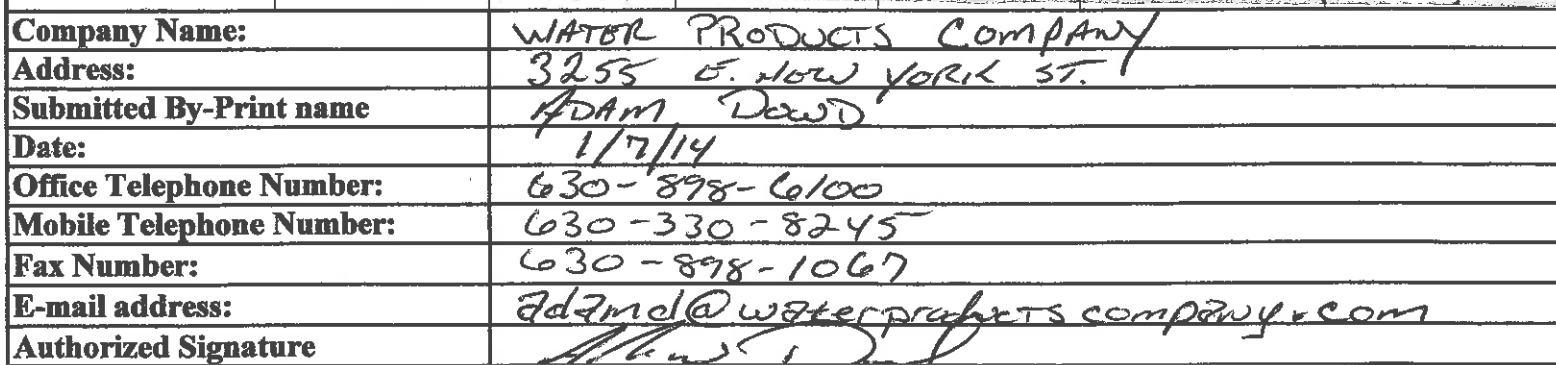 Company Name: WATER PRODUCTS COMPANY
Address: 3255 E. NEW YORK ST.
Submitted By-Print name ADAM DOWD
Date: 1/7/14
Office Telephone Number: 630-898-6100
Mobile Telephone Number: 630-330-8245
Fax Number: 630-898-1067
E-mail address: adamd@waterproductscompany.com
Authorized Signature